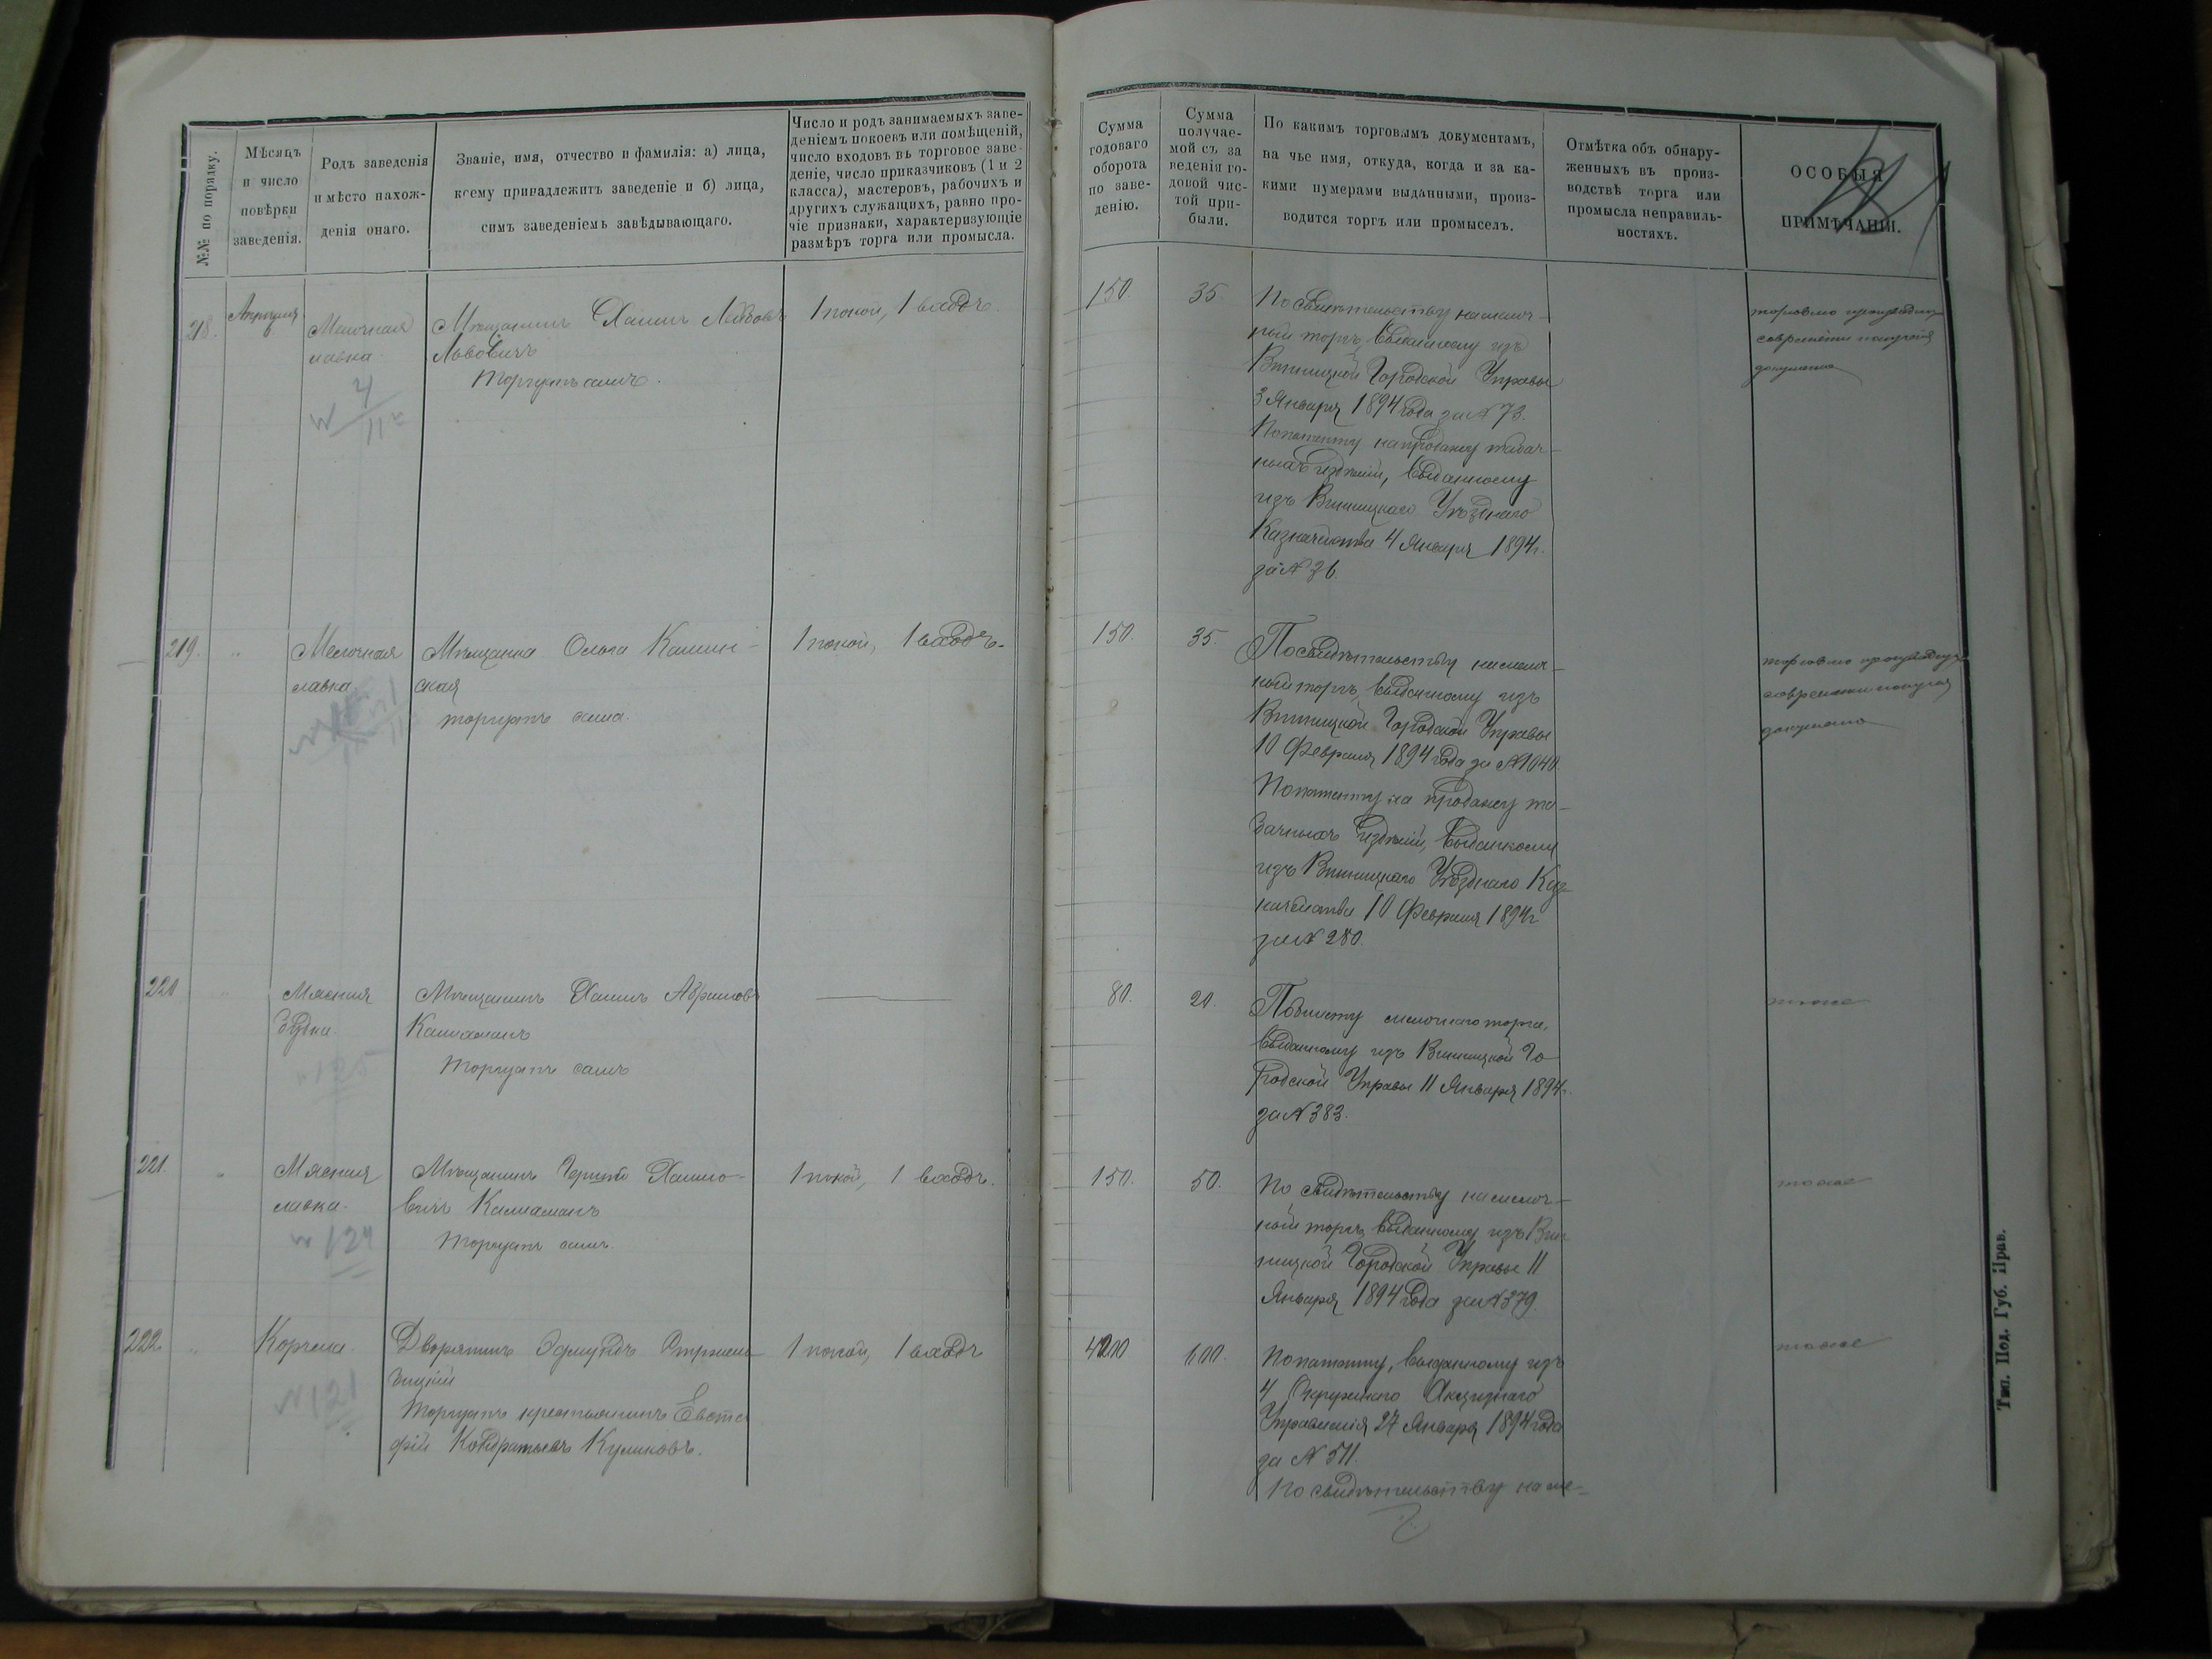 №№ по порядку.
Мѣсяцъ
и число
повѣрки
заведенія.
Родъ заведенія
и мѣсто нахож-
денія онаго.
Званіе, имя, отчество и фамилія: а) лица,
коему принадлежитъ заведеніе и б) лица,
симъ заведеніемъ завѣдывающаго.
Число и родъ занимаемыхъ заве-
деніемъ покоевъ или помѣщеній,
число входовъ въ торговое заве-
деніе, число приказчиковъ (1 и 2
класса), мастеровъ, рабочихъ и
другихъ служащихъ, равно про-
чіе признаки, характеризующіе
размѣръ торга или промысла.
Сумма
годоваго
оборота
по заве-
денію.
Сумма
получае-
мой съ за
веденія го-
довой чис-
той при-
были.
По какимъ торговымъ документамъ,
на чье имя, откуда, когда и за ка-
кими нумерами выданными, произ-
водится торгъ или промыселъ.
Отмѣтка объ обнару-
женныхъ въ произ-
водствѣ торга или
промысла неправиль-
ностяхъ.
ОСОБЫЯ
ПРИМѢЧАНІЯ.
218.
Апрѣля
Мелочная
лавка.
№ 4
11
Мѣщанинъ Хаимъ
Львовичъ
Торгуетъ самъ.
1 покой, 1 входъ.
150
35.
По свидѣтельству на мелоч-
ный торгъ, выданному изъ
Винницкой Городской Управы
3 Января 1894 года за № 73.
По патенту на продажу табач-
ныхъ издѣлій, выданному
изъ Винницкаго Уѣзднаго
Казначейства 4 Января 1894 г.
за № 36.
торговлю производитъ
современи полученія
документа
219.
"
Мелочная
лавка.
Мѣщанка Ольга Камин-
ская
торгуетъ сама.
1 покой, 1 входъ.
150.
35.
По свидѣтельству на мелоч-
ный торгъ, выданному изъ
Винницкой Городской Управы
10 Февраля 1894 года за № 1040.
По патенту на продажу та-
бачныхъ издѣлій, выданному
изъ Винницкаго Уѣзднаго Каз-
начейства 10 Февраля 1894 г
за № 280.
торговлю производитъ
современи полученія
документа
220
"
Мясная
будка.
№ 125
Мѣщанинъ Хаимъ Абрамовъ
Калихманъ
Торгуетъ самъ
80.
20.
По билету мелочнаго торга,
выданному изъ Винницкой Го-
родской Управы 11 Января 1894 г.
за № 383.
тоже
221.
"
Мясная
лавка.
№ 124
Мѣщанинъ Хаимо-
вичъ Калихманъ
Торгуетъ самъ
1 покой, 1 входъ.
150.
50.
По свидѣтельству на мелоч-
ный торгъ, выданному изъ Вин-
ницкой Городской Управы 11
Января 1894 года за № 379.
тоже
222
"
Корчма.
№ 121
Дворянинъ Эдмундъ
Торгуетъ крестьянинъ Евста
фій Кондратьевъ Куликовъ.
1 покой, 1 входъ
600.
По патенту, выданному изъ
4 Окружнаго Акцизнаго
Управленія 27 Января 1894 года
за № 511.
По свидѣтельству на ме-
тоже
Тип. Под. Губ. Прав.